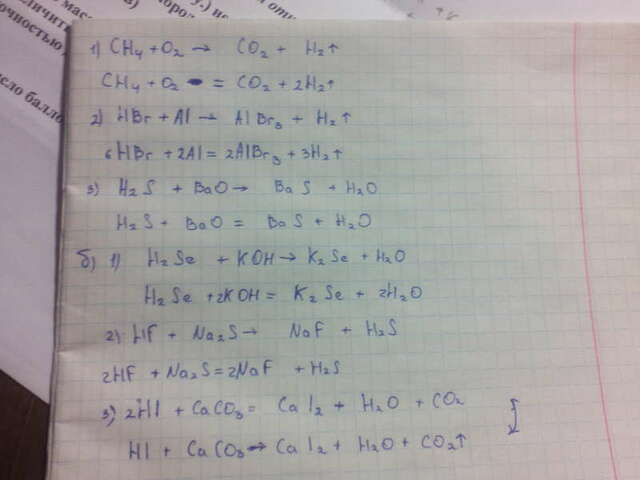 1) CH₄ + O₂ → CO₂ + H₂↑
CH₄ + O₂ = CO₂ + 2H₂↑
2) HBr + Al → AlBr₃ + H₂↑
6HBr + 2Al = 2AlBr₃ + 3H₂↑
3) H₂S + BaO → BaS + H₂O
H₂S + BaO = BaS + H₂O
б) 1) H₂Se + KOH → K₂Se + H₂O
H₂Se + 2KOH = K₂Se + 2H₂O
2) HF + Na₂S → NaF + H₂S
2HF + Na₂S = 2NaF + H₂S
3) 2HI + CaCO₃ = CaI₂ + H₂O + CO₂
HI + CaCO₃ → CaI₂ + H₂O + CO₂↑